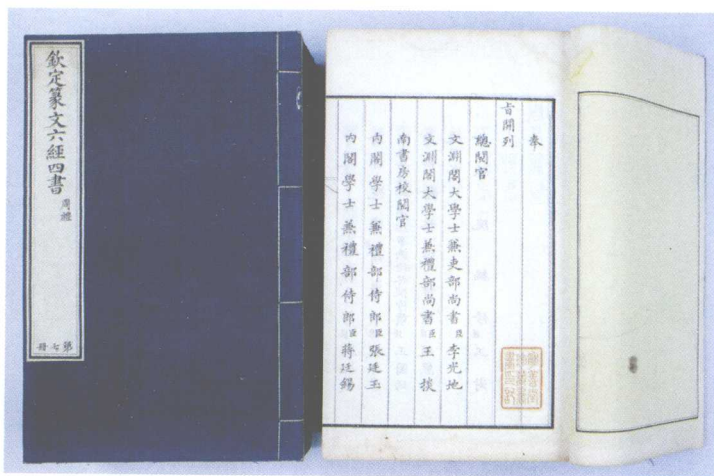 欽定篆文六經四書
周禮
第七冊
奉
旨開列
總閱官
文淵閣大學士兼吏部尚書臣李光地
文淵閣大學士兼禮部尚書臣王掞
南書房校閱官
內閣學士兼禮部侍郎臣張廷玉
內閣學士兼禮部侍郎臣蔣廷錫